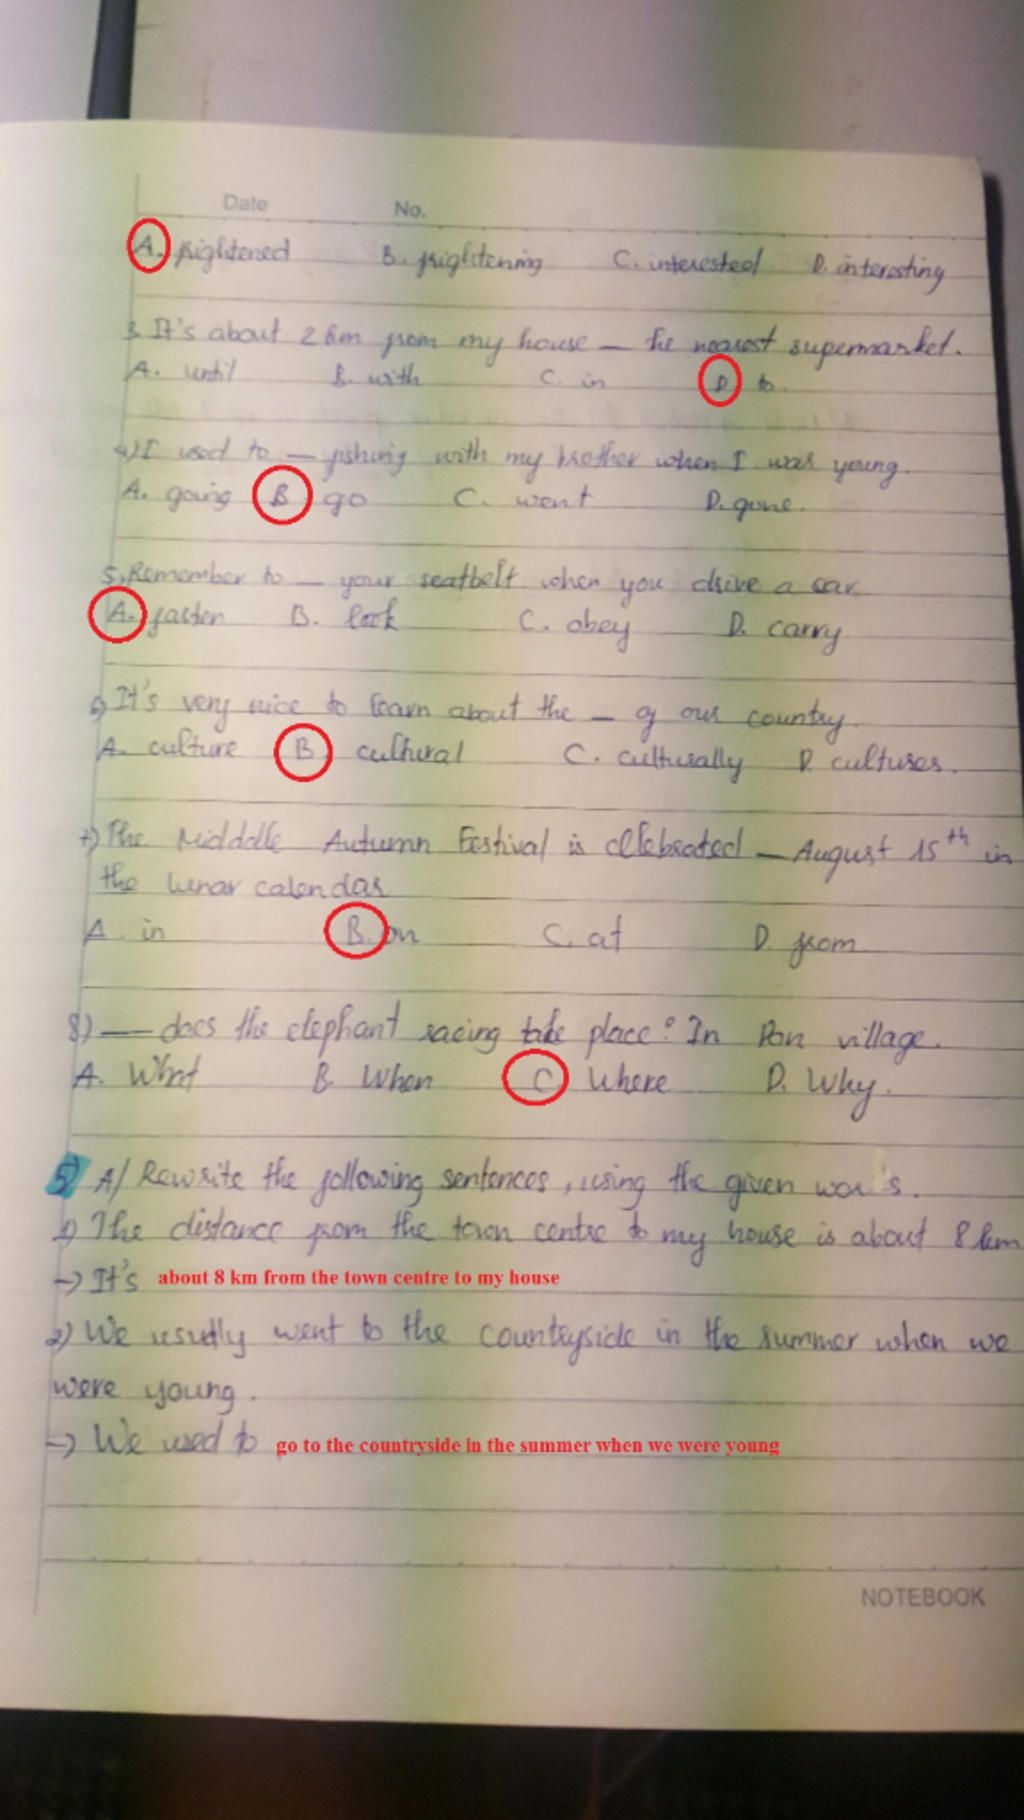 Date No.
A. frightened B. frightening C. interested D. interesting
3. It's about 2km from my house — the nearest supermarket.
A. until B. with C. in D. to
4) I used to — fishing with my brother when I was young.
A. going B. go C. went D. gone.
5, Remember to — your seatbelt when you drive a car
A. fasten B. lock C. obey D. carry
6) It's very nice to learn about the — of our country.
A. culture B. cultural C. culturally D. cultures.
7) The Middle Autumn Festival is celebrated — August 15th in
the lunar calendar
A. in B. on C. at D. from
8) — does the elephant racing take place? In Don village.
A. What B. When C. Where D. Why.
5 A/ Rewrite the following sentences, using the given words.
1) The distance from the town centre to my house is about 8 km
-> It's about 8 km from the town centre to my house
2) We usually went to the countryside in the summer when we
were young.
-> We used to go to the countryside in the summer when we were young
NOTEBOOK